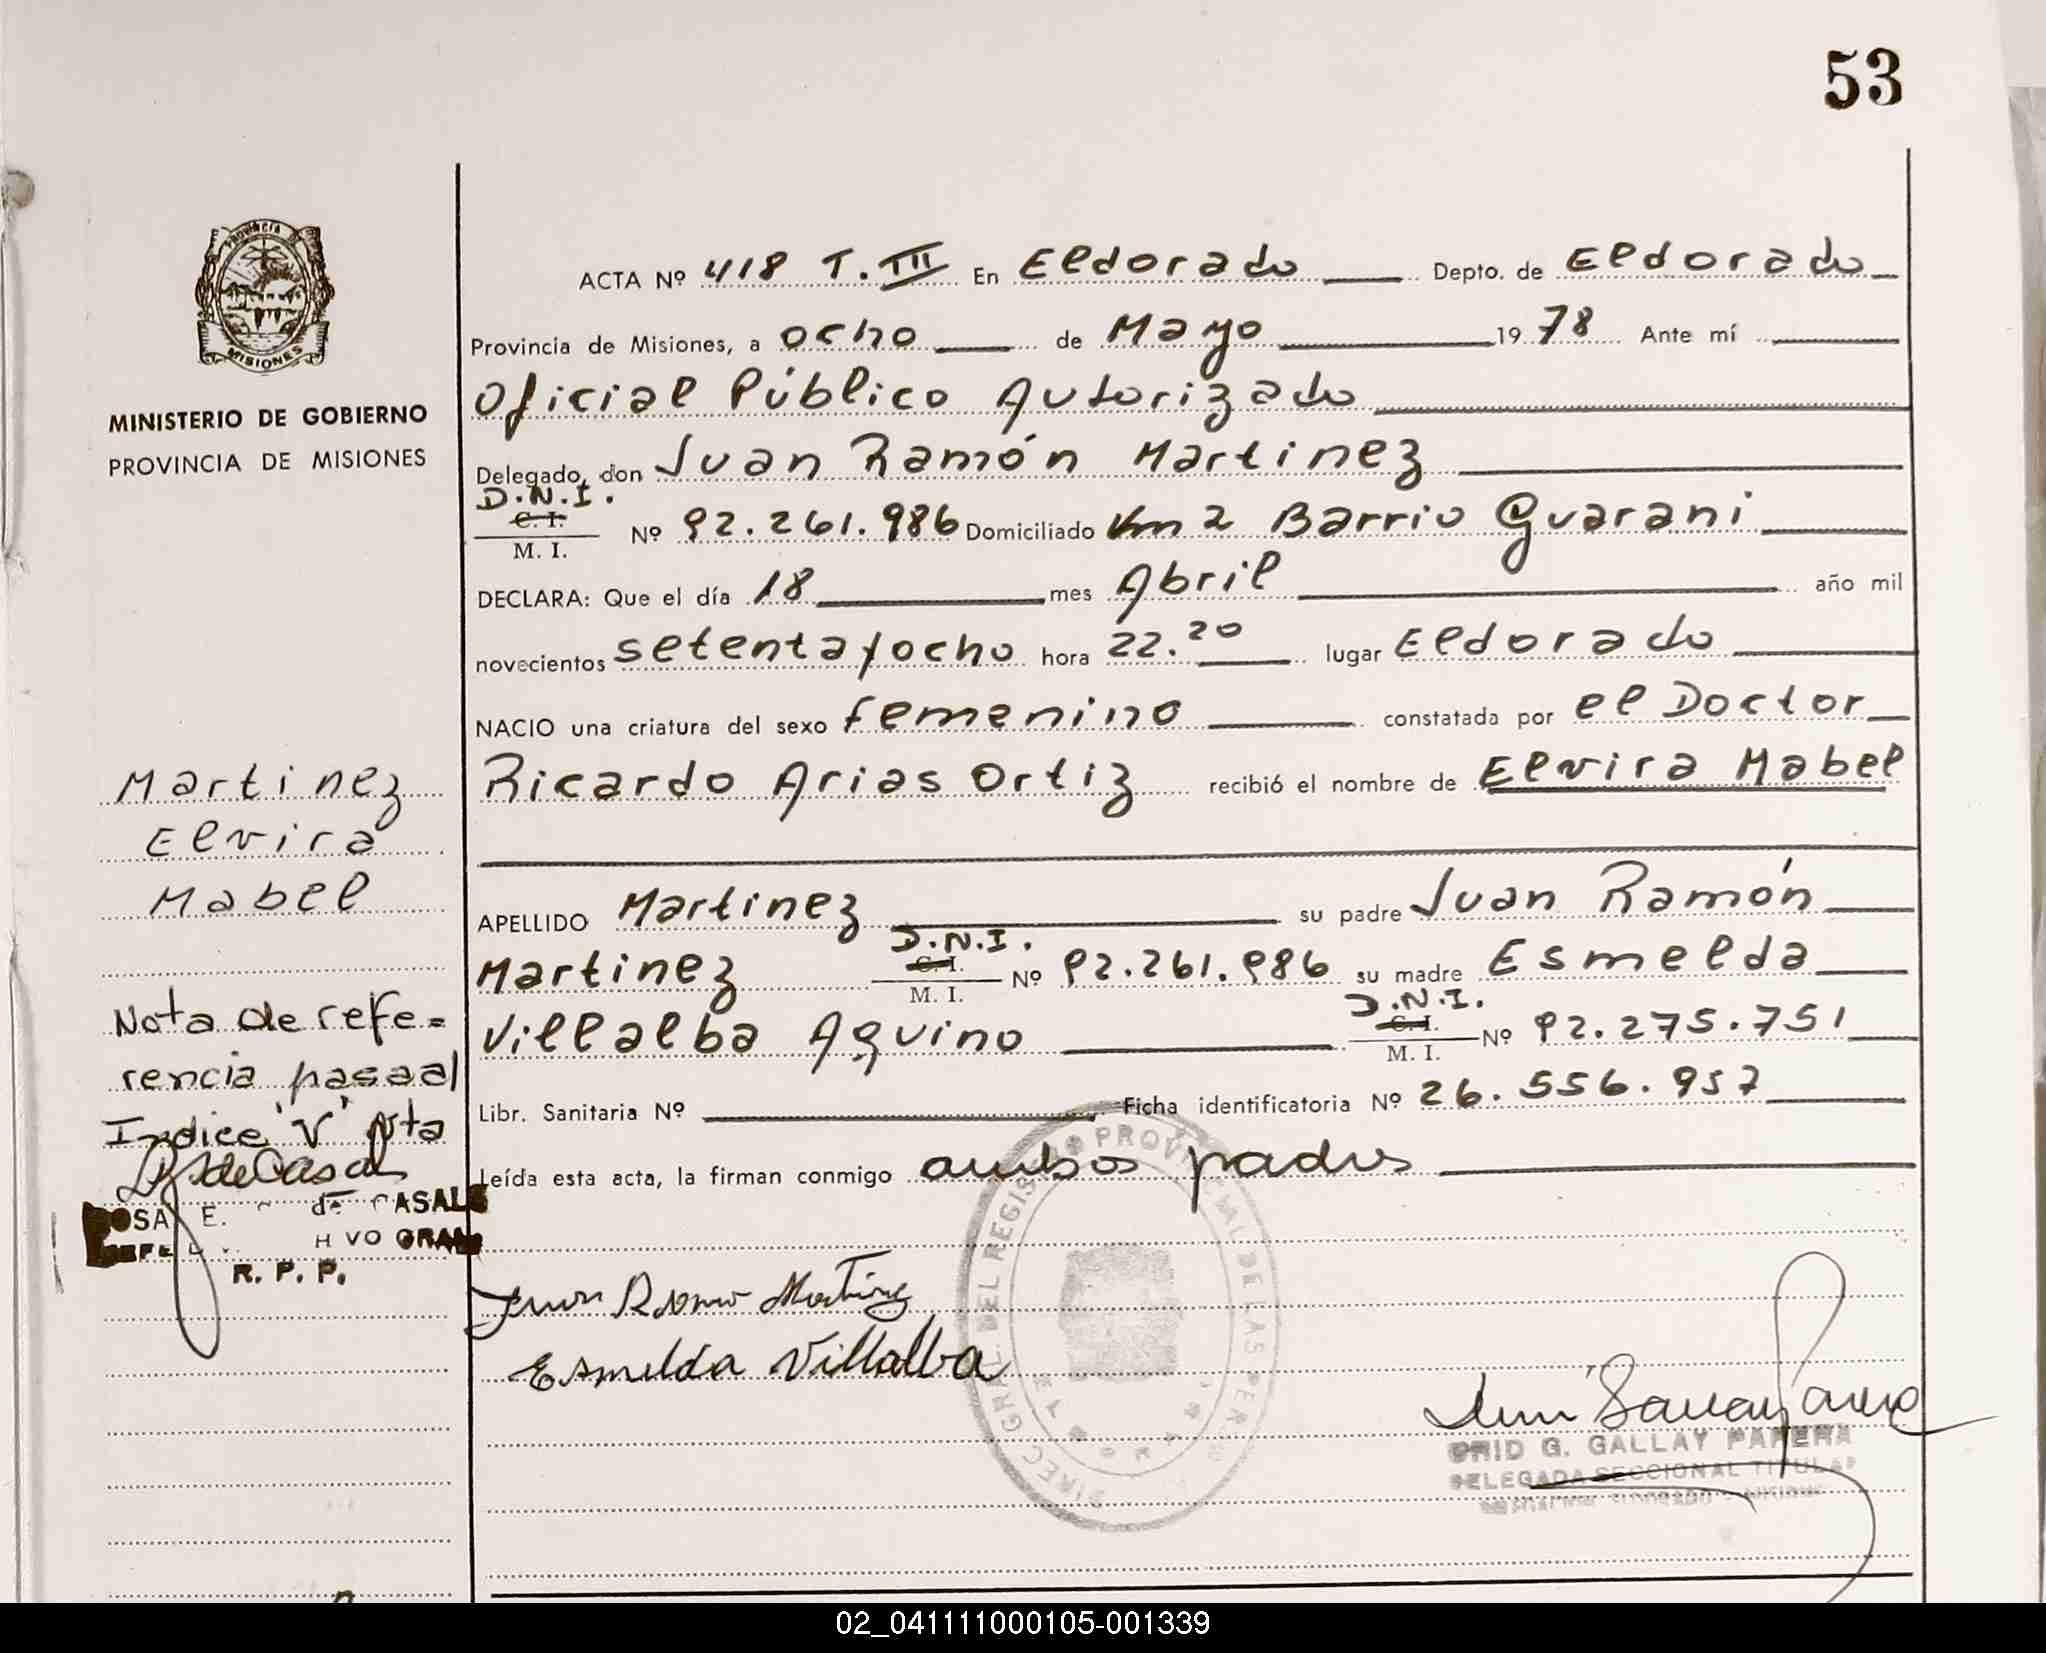 53
PROVINCIA DE
MISIONES
MINISTERIO DE GOBIERNO
PROVINCIA DE MISIONES
ACTA Nº 418 T. III En Eldorado Depto. de Eldorado
Provincia de Misiones, a ocho de Mayo 1978 Ante mí
Oficial Público Autorizado
Delegado, don Juan Ramón Martinez
D.N.I.
C. I.
M. I. Nº 92.261.986 Domiciliado Km 2 Barrio Guarani
DECLARA: Que el día 18 mes Abril año mil
novecientos setenta y ocho hora 22.20 lugar Eldorado
NACIO una criatura del sexo femenino constatada por el Doctor
Ricardo Arias Ortiz recibió el nombre de Elvira Mabel
APELLIDO Martinez su padre Juan Ramón
D.N.I.
C. I.
Martinez M. I. Nº 92.261.986 su madre Esmelda
D.N.I.
C. I.
Villalba Aquino M. I. Nº 92.275.751
Libr. Sanitaria Nº Ficha identificatoria Nº 26.556.957
Leída esta acta, la firman conmigo ambos padres
Juan Ramon Martinez
Esmelda Villalba
Martinez
Elvira
Mabel
Nota de refe=
rencia pasa al
Indice "V" Pta
de Casal
ROSA E. de CASALE
JEFE
R. P. P.
DIREC. GRAL. DEL REGISTRO PROVINCIAL DE LAS PER
G. GALLAY PARERA
DELEGADA SECCIONAL TITULAR
02_041111000105-001339